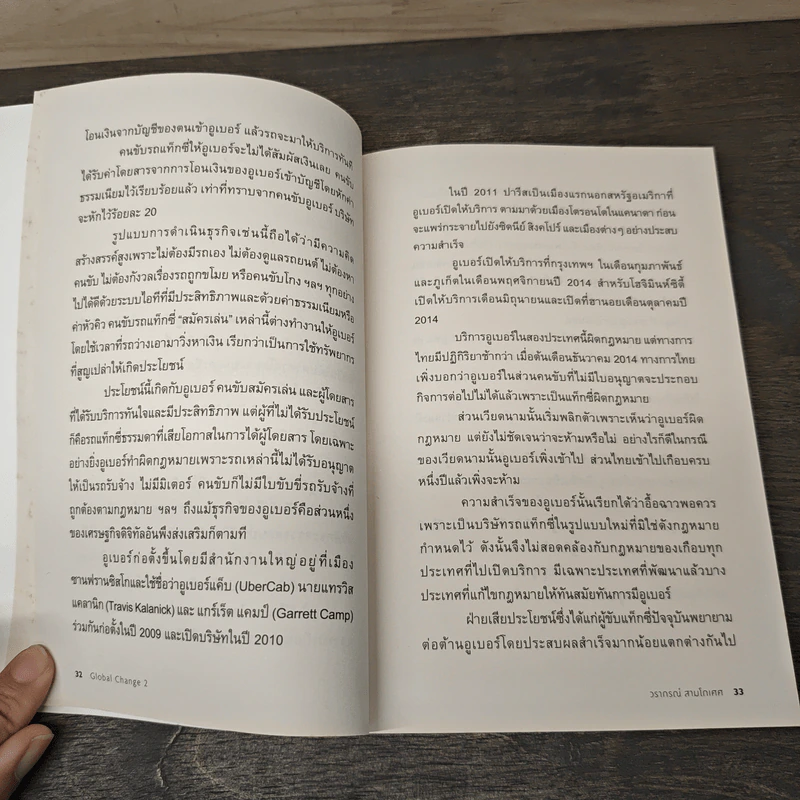 โอนเงินจากบัญชีของตนเข้าอูเบอร์ แล้วรถจะมาให้บริการทันที
คนขับรถแท็กซี่ให้อูเบอร์จะไม่ได้สัมผัสเงินเลย คนขับ
ได้รับค่าโดยสารจากการโอนเงินของอูเบอร์เข้าบัญชีโดยหักค่า
ธรรมเนียมไว้เรียบร้อยแล้ว เท่าที่ทราบจากคนขับอูเบอร์ บริษัท
จะหักไว้ร้อยละ 20
รูปแบบการดำเนินธุรกิจเช่นนี้ถือได้ว่ามีความคิด
สร้างสรรค์สูงเพราะไม่ต้องมีรถเอง ไม่ต้องดูแลรถยนต์ ไม่ต้องหา
คนขับ ไม่ต้องกังวลเรื่องรถถูกขโมย หรือคนขับโกง ฯลฯ ทุกอย่าง
ไปได้ดีด้วยระบบไอทีที่มีประสิทธิภาพและด้วยค่าธรรมเนียมหรือ
ค่าหัวคิว คนขับรถแท็กซี่ “สมัครเล่น” เหล่านี้ต่างทำงานให้อูเบอร์
โดยใช้เวลาที่รถว่างเอามาวิ่งหาเงิน เรียกว่าเป็นการใช้ทรัพยากร
ที่สูญเปล่าให้เกิดประโยชน์
ประโยชน์นี้เกิดกับอูเบอร์ คนขับสมัครเล่น และผู้โดยสาร
ที่ได้รับบริการทันใจและมีประสิทธิภาพ แต่ผู้ที่ไม่ได้รับประโยชน์
ก็คือรถแท็กซี่ธรรมดาที่เสียโอกาสในการได้ผู้โดยสาร โดยเฉพาะ
อย่างยิ่งอูเบอร์ทำผิดกฎหมายเพราะรถเหล่านี้ไม่ได้รับอนุญาต
ให้เป็นรถรับจ้าง ไม่มีมิเตอร์ คนขับก็ไม่มีใบขับขี่รถรับจ้างที่
ถูกต้องตามกฎหมาย ฯลฯ ถึงแม้ธุรกิจของอูเบอร์คือส่วนหนึ่ง
ของเศรษฐกิจดิจิทัลอันพึงส่งเสริมก็ตามที
อูเบอร์ก่อตั้งขึ้นโดยมีสำนักงานใหญ่อยู่ที่เมือง
ซานฟรานซิสโกและใช้ชื่อว่าอูเบอร์แค็บ (UberCab) นายแทรวิส
แคลานิก (Travis Kalanick) และ แกร์เร็ต แคมป์ (Garrett Camp)
ร่วมกันก่อตั้งในปี 2009 และเปิดบริษัทในปี 2010
32 Global Change 2
ในปี 2011 ปารีสเป็นเมืองแรกนอกสหรัฐอเมริกาที่
อูเบอร์เปิดให้บริการ ตามมาด้วยเมืองโตรอนโตในแคนาดา ก่อน
จะแพร่กระจายไปยังซิดนีย์ สิงคโปร์ และเมืองต่างๆ อย่างประสบ
ความสำเร็จ
อูเบอร์เปิดให้บริการที่กรุงเทพฯ ในเดือนกุมภาพันธ์
และภูเก็ตในเดือนพฤศจิกายนปี 2014 สำหรับโฮจิมินห์ซิตี้
เปิดให้บริการเดือนมิถุนายนและเปิดที่ฮานอยเดือนตุลาคมปี
2014
บริการอูเบอร์ในสองประเทศนี้ผิดกฎหมาย แต่ทางการ
ไทยมีปฏิกิริยาช้ากว่า เมื่อต้นเดือนธันวาคม 2014 ทางการไทย
เพิ่งบอกว่าอูเบอร์ในส่วนคนขับที่ไม่มีใบอนุญาตจะประกอบ
กิจการต่อไปไม่ได้แล้วเพราะเป็นแท็กซี่ผิดกฎหมาย
ส่วนเวียดนามนั้นเริ่มพลิกตัวเพราะเห็นว่าอูเบอร์ผิด
กฎหมาย แต่ยังไม่ชัดเจนว่าจะห้ามหรือไม่ อย่างไรก็ดีในกรณี
ของเวียดนามนั้นอูเบอร์เพิ่งเข้าไป ส่วนไทยเข้าไปเกือบครบ
หนึ่งปีแล้วเพิ่งจะห้าม
ความสำเร็จของอูเบอร์นั้นเรียกได้ว่าอื้อฉาวพอควร
เพราะเป็นบริษัทรถแท็กซี่ในรูปแบบใหม่ที่มิใช่ดังกฎหมาย
กำหนดไว้ ดังนั้นจึงไม่สอดคล้องกับกฎหมายของเกือบทุก
ประเทศที่ไปเปิดบริการ มีเฉพาะประเทศที่พัฒนาแล้วบาง
ประเทศที่แก้ไขกฎหมายให้ทันสมัยทันการมีอูเบอร์
ฝ่ายเสียประโยชน์ซึ่งได้แก่ผู้ขับแท็กซี่ปัจจุบันพยายาม
ต่อต้านอูเบอร์โดยประสบผลสำเร็จมากน้อยแตกต่างกันไป
วรากรณ์ สามโกเศศ 33